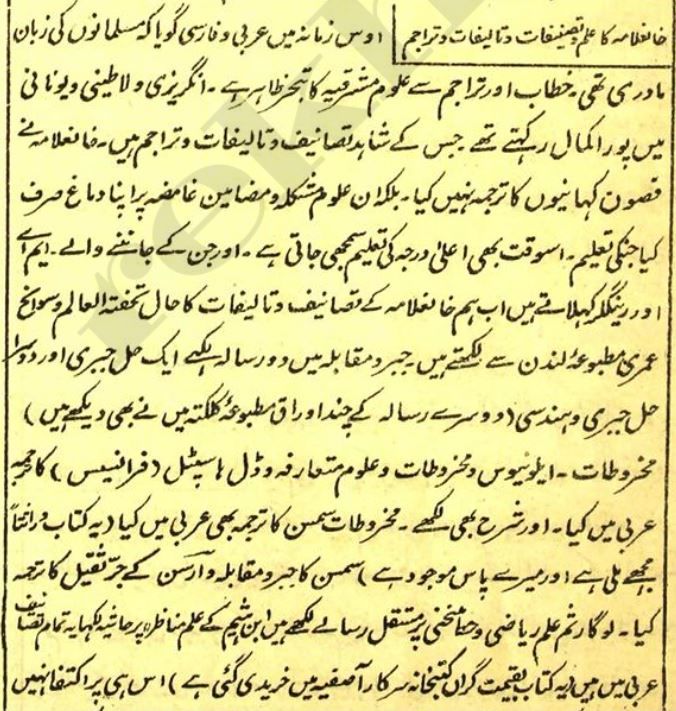 خانعلامہ کا علم و تصنیفات و تالیفات و تراجم اوس زمانہ میں عربی و فارسی گویا کہ مسلمانوں کی زبان
مادری تھی۔ خطاب اور تراجم سے علوم مشرقیہ کا تبحر ظاہر ہے۔ انگریزی و لاطینی و یونانی
میں پورا کمال رکہتے تھے جس کے شاہد تصانیف و تالیفات و تراجم ہیں۔ خانعلامہ نے
قصون کہانیوں کا ترجمہ نہیں کیا۔ بلکہ ان علوم مشکلہ و مضامین غامضہ پر اپنا دماغ صرف
کیا جنکی تعلیم۔ اسوقت بھی اعلیٰ درجہ کی تعلیم سمجھی جاتی ہے۔ اور جن کے جاننے والے۔ ایم اے
اور رینگلر کہلاتے ہیں اب ہم خانعلامہ کے تصانیف و تالیفات کا حال تحفتہ العالم و سوانح
عمری مطبوعۂ لندن سے لکھتے ہیں۔ جبر و مقابلہ میں دو رسالہ لکہے ایک حل جبری اور دوسرا
حل جبری و ہندسی (دوسرے رسالہ کے چند اوراق مطبوعۂ کلکتہ میں نے بھی دیکھے ہیں)
مخروطات۔ ایلونیوس و مخروطات و علوم متعارفہ و ڈل ہاسپٹل (فرانسیس) کا ترجمہ
عربی میں کیا۔ اور شرح بھی لکھے۔ مخروطات سمسن کا ترجمہ بھی عربی میں کیا (یہ کتاب وراثتاً
مجھے ملی ہے اور میرے پاس موجود ہے) سمسن کا جبر و مقابلہ و آرسن کے جر ثقیل کا ترجمہ
کیا۔ لوگارثم علم ریاضی و منحنی پر مستقل رسالے لکھے ہیں ابن ہثیم کے علم مناظرہ پر حاشیہ لکہا یہ تمام تصانیف
عربی میں ہیں (یہ کتاب بقیمت گراں کتبخانہ سرکار آصفیہ میں خریدی گئی ہے) اس ہی پر اکتفا نہیں